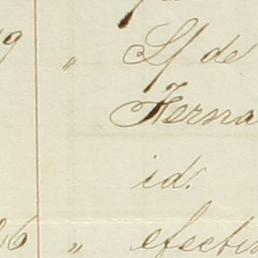 9 " S/ de
Herna
id.
26 " efectiv